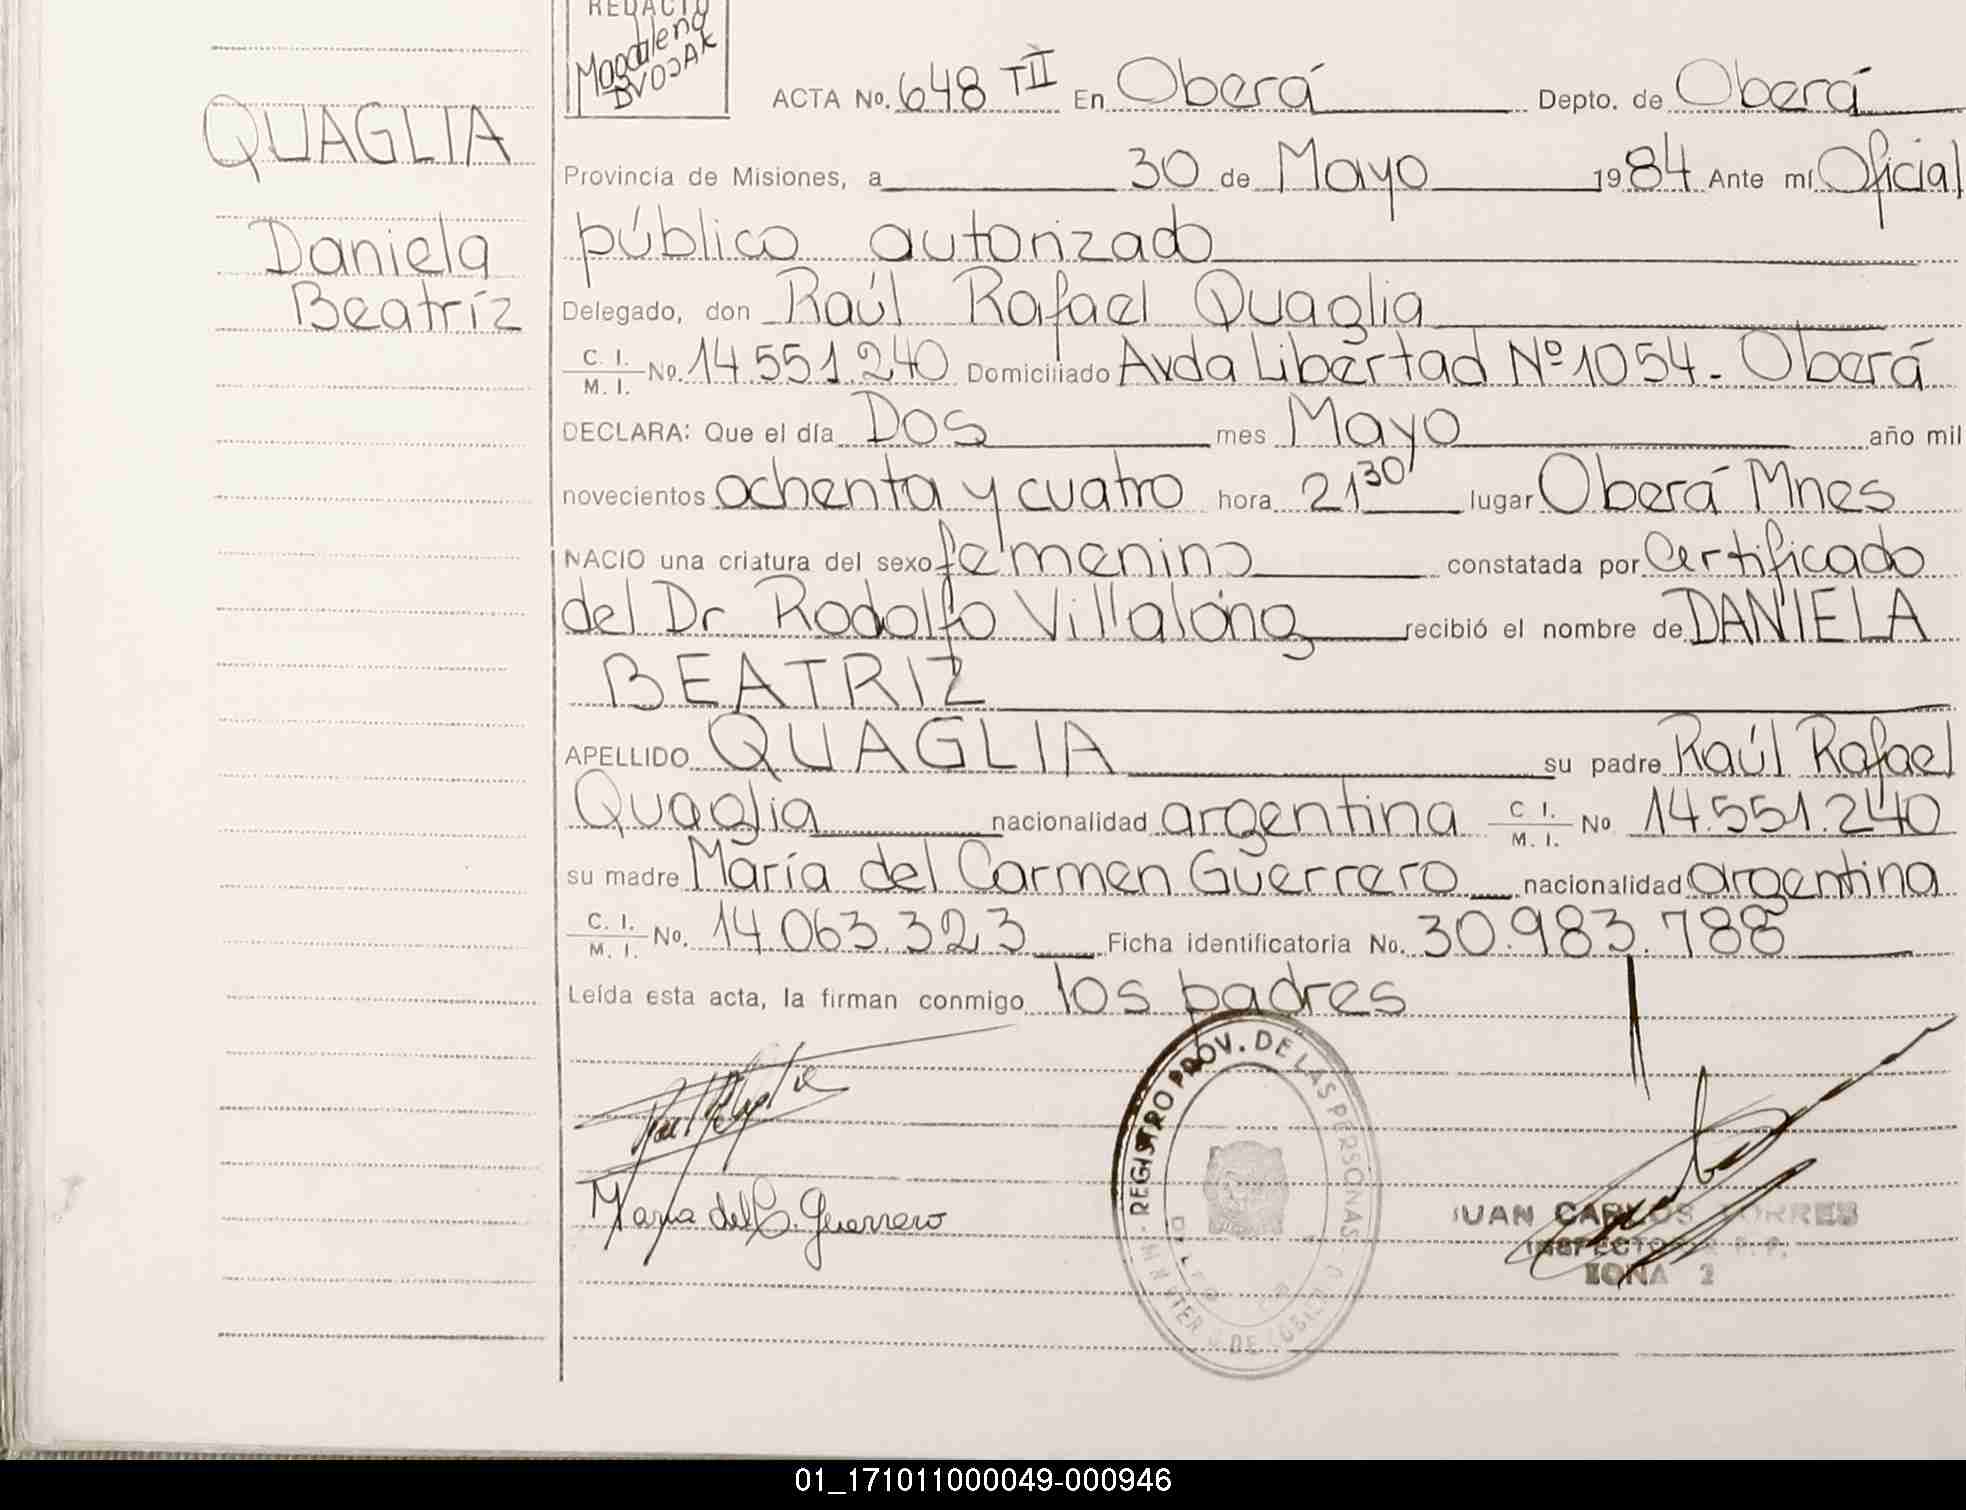 REDACTO
Magdalena
DVOJAK
ACTA No. 648 TII En Oberá Depto. de Oberá
QUAGLIA
Provincia de Misiones, a 30 de Mayo 1984 Ante mí Oficial
público autorizado
Daniela
Beatríz
Delegado, don Raúl Rafael Quaglia
C. I. M. I. No. 14.551.240 Domiciliado Avda Libertad Nº 1054 - Oberá
DECLARA: Que el día Dos mes Mayo año mil
novecientos ochenta y cuatro hora 21 30 lugar Oberá Mnes
NACIO una criatura del sexo femenino constatada por Certificado
del Dr Rodolfo Villalong recibió el nombre de DANIELA
BEATRIZ
APELLIDO QUAGLIA su padre Raúl Rafael
Quaglia nacionalidad argentina C I. M. I. No 14.551.240
su madre María del Carmen Guerrero nacionalidad argentina
C. I. M. I. No. 14.063.323 Ficha identificatoria No. 30.983.788
Leída esta acta, la firman conmigo los padres
REGISTRO PROV. DE LAS PERSONAS
Maria del C. Guerrero
JUAN CARLOS TORRES
INSPECTOR R. P. P.
ZONA 2
01_171011000049-000946